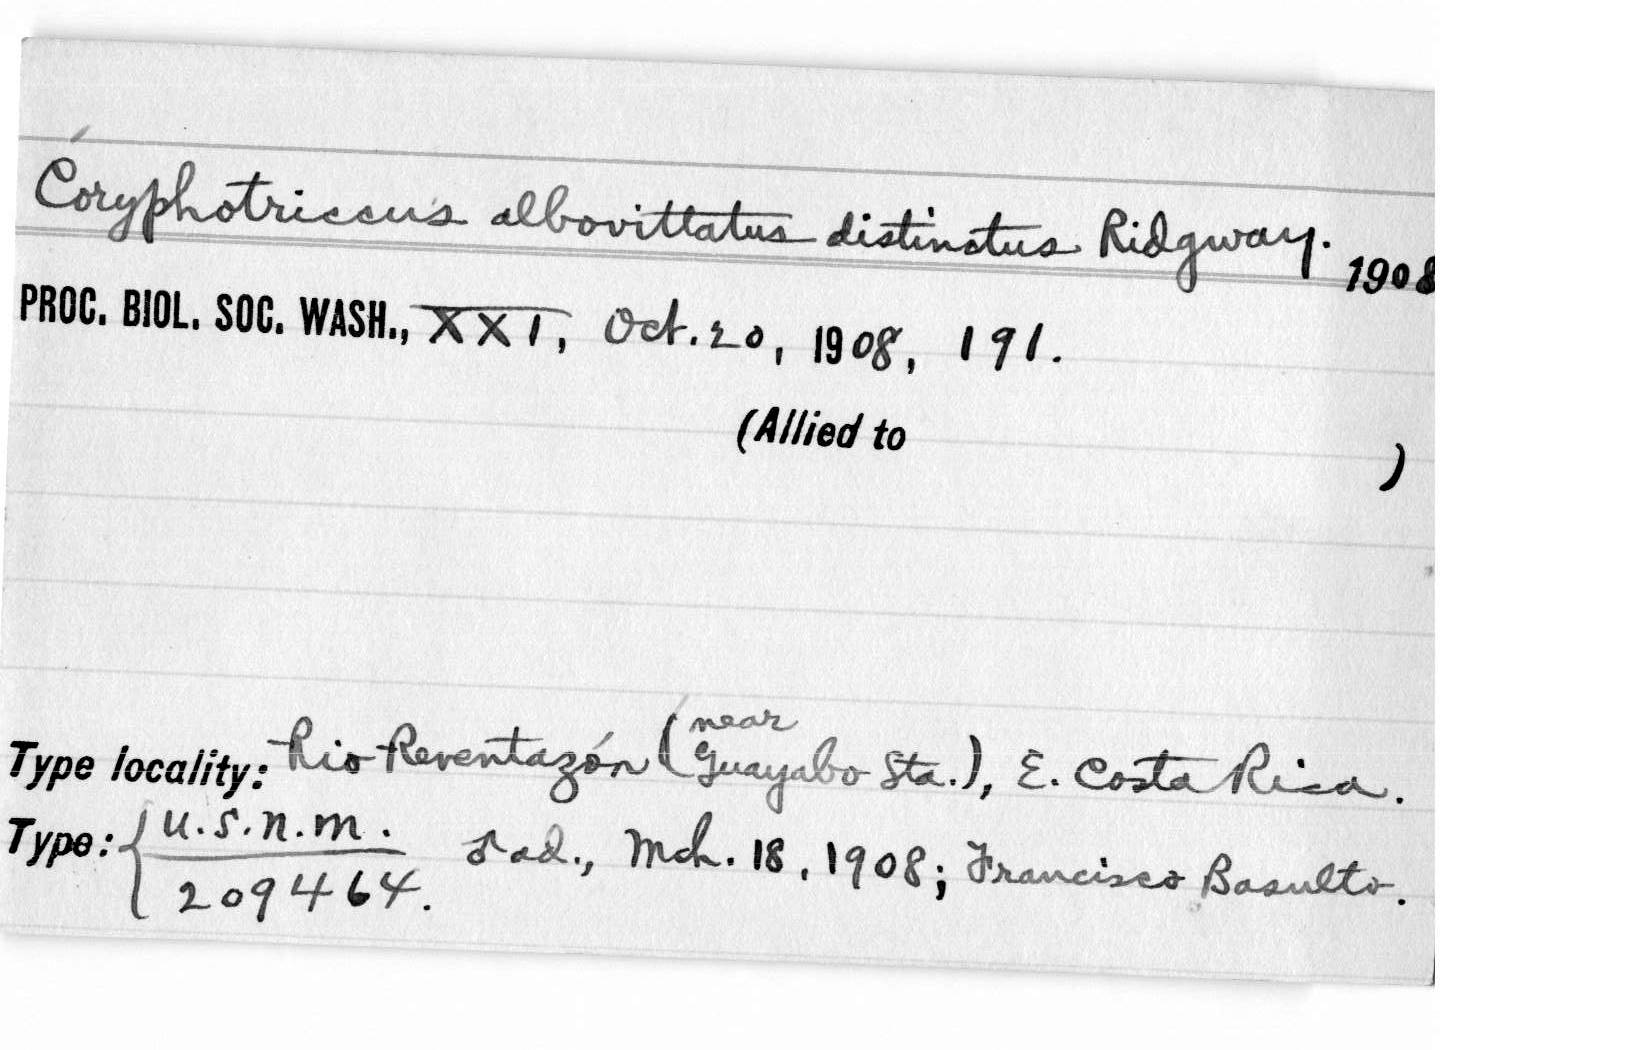 Coryphotriccus albovittatus distinctus Ridgway.
1908
PROC. BIOL. SOC. WASH., XXI, Oct. 20, 1908, 191.
(Allied to )
Type locality: Rio Reventazón (near Guayabo Sta.), E. Costa Rica.
Type: { U.S.N.M. ♂ ad., Mch. 18, 1908; Francisco Basulto.
209464.